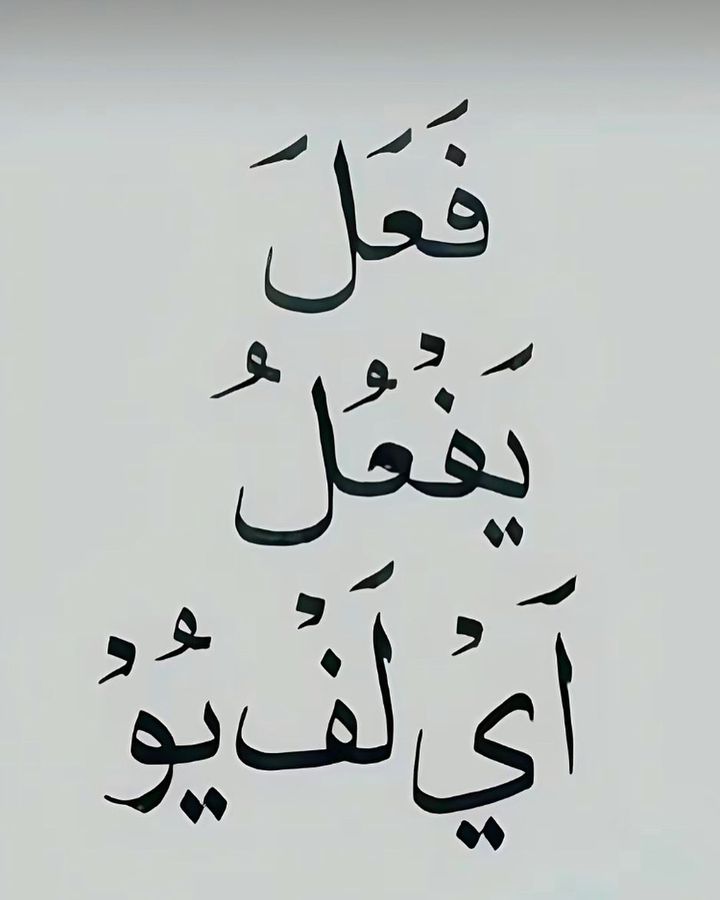 فَعَلَ
يَفْعُلُ
اَيْ لَفْ يُوْ